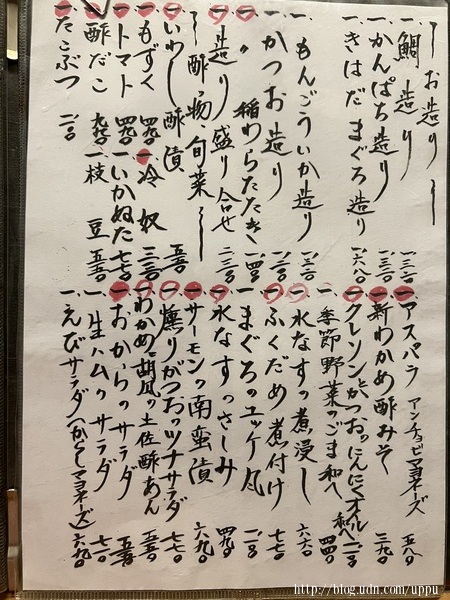 〜お造り〜
一、鯛造り 一、三〇〇
一、かんぱち造り 一、三〇〇
一、きはだまぐろ造り 一、六八〇
一、もんごういか造り 一、三〇〇
一、かつお造り
一、〃 稲わらたたき
一、造り盛り合せ 二、三〇〇
〜酢の物、旬菜〜
一、いわし酢漬 五五〇
一、もずく 四五〇
一、冷奴
一、トマト 四九〇
一、いかぬた 七七〇
一、酢だこ
一、枝豆 五五〇
一、たこぶつ
一、アスパラ アンチョビマヨネーズ 五八〇
一、新わかめ酢みそ 三九〇
一、クレソンとかつおのにんにくオイル和へ
一、季節野菜のごま和へ 四四〇
一、水なすの煮浸し 六六〇
一、ふくだめ煮付け 七七〇
一、まぐろのユッケ風
一、水なすのさしみ 四九〇
一、サーモンの南蛮漬 六九〇
一、燻りがつおのツナサラダ 七七〇
一、わかめ胡瓜の土佐酢あん 五五〇
一、おからのサラダ 五五〇
一、生ハムのサラダ
一、えびサラダ(からしマヨネーズ) 六九〇
http://blog.udn.com/uppu